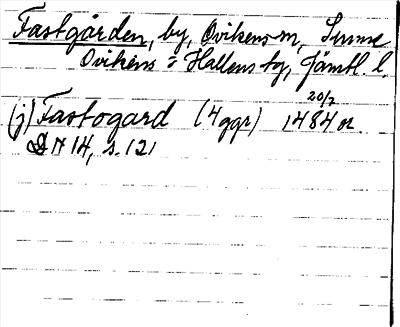 Fastgården, by, Ovikens sn, Sunne
Ovikens o Hallens tg, Jämtl. l.
(j) Fastogard (4 ggr) 20/7 1484 or.
DN 14, s. 121